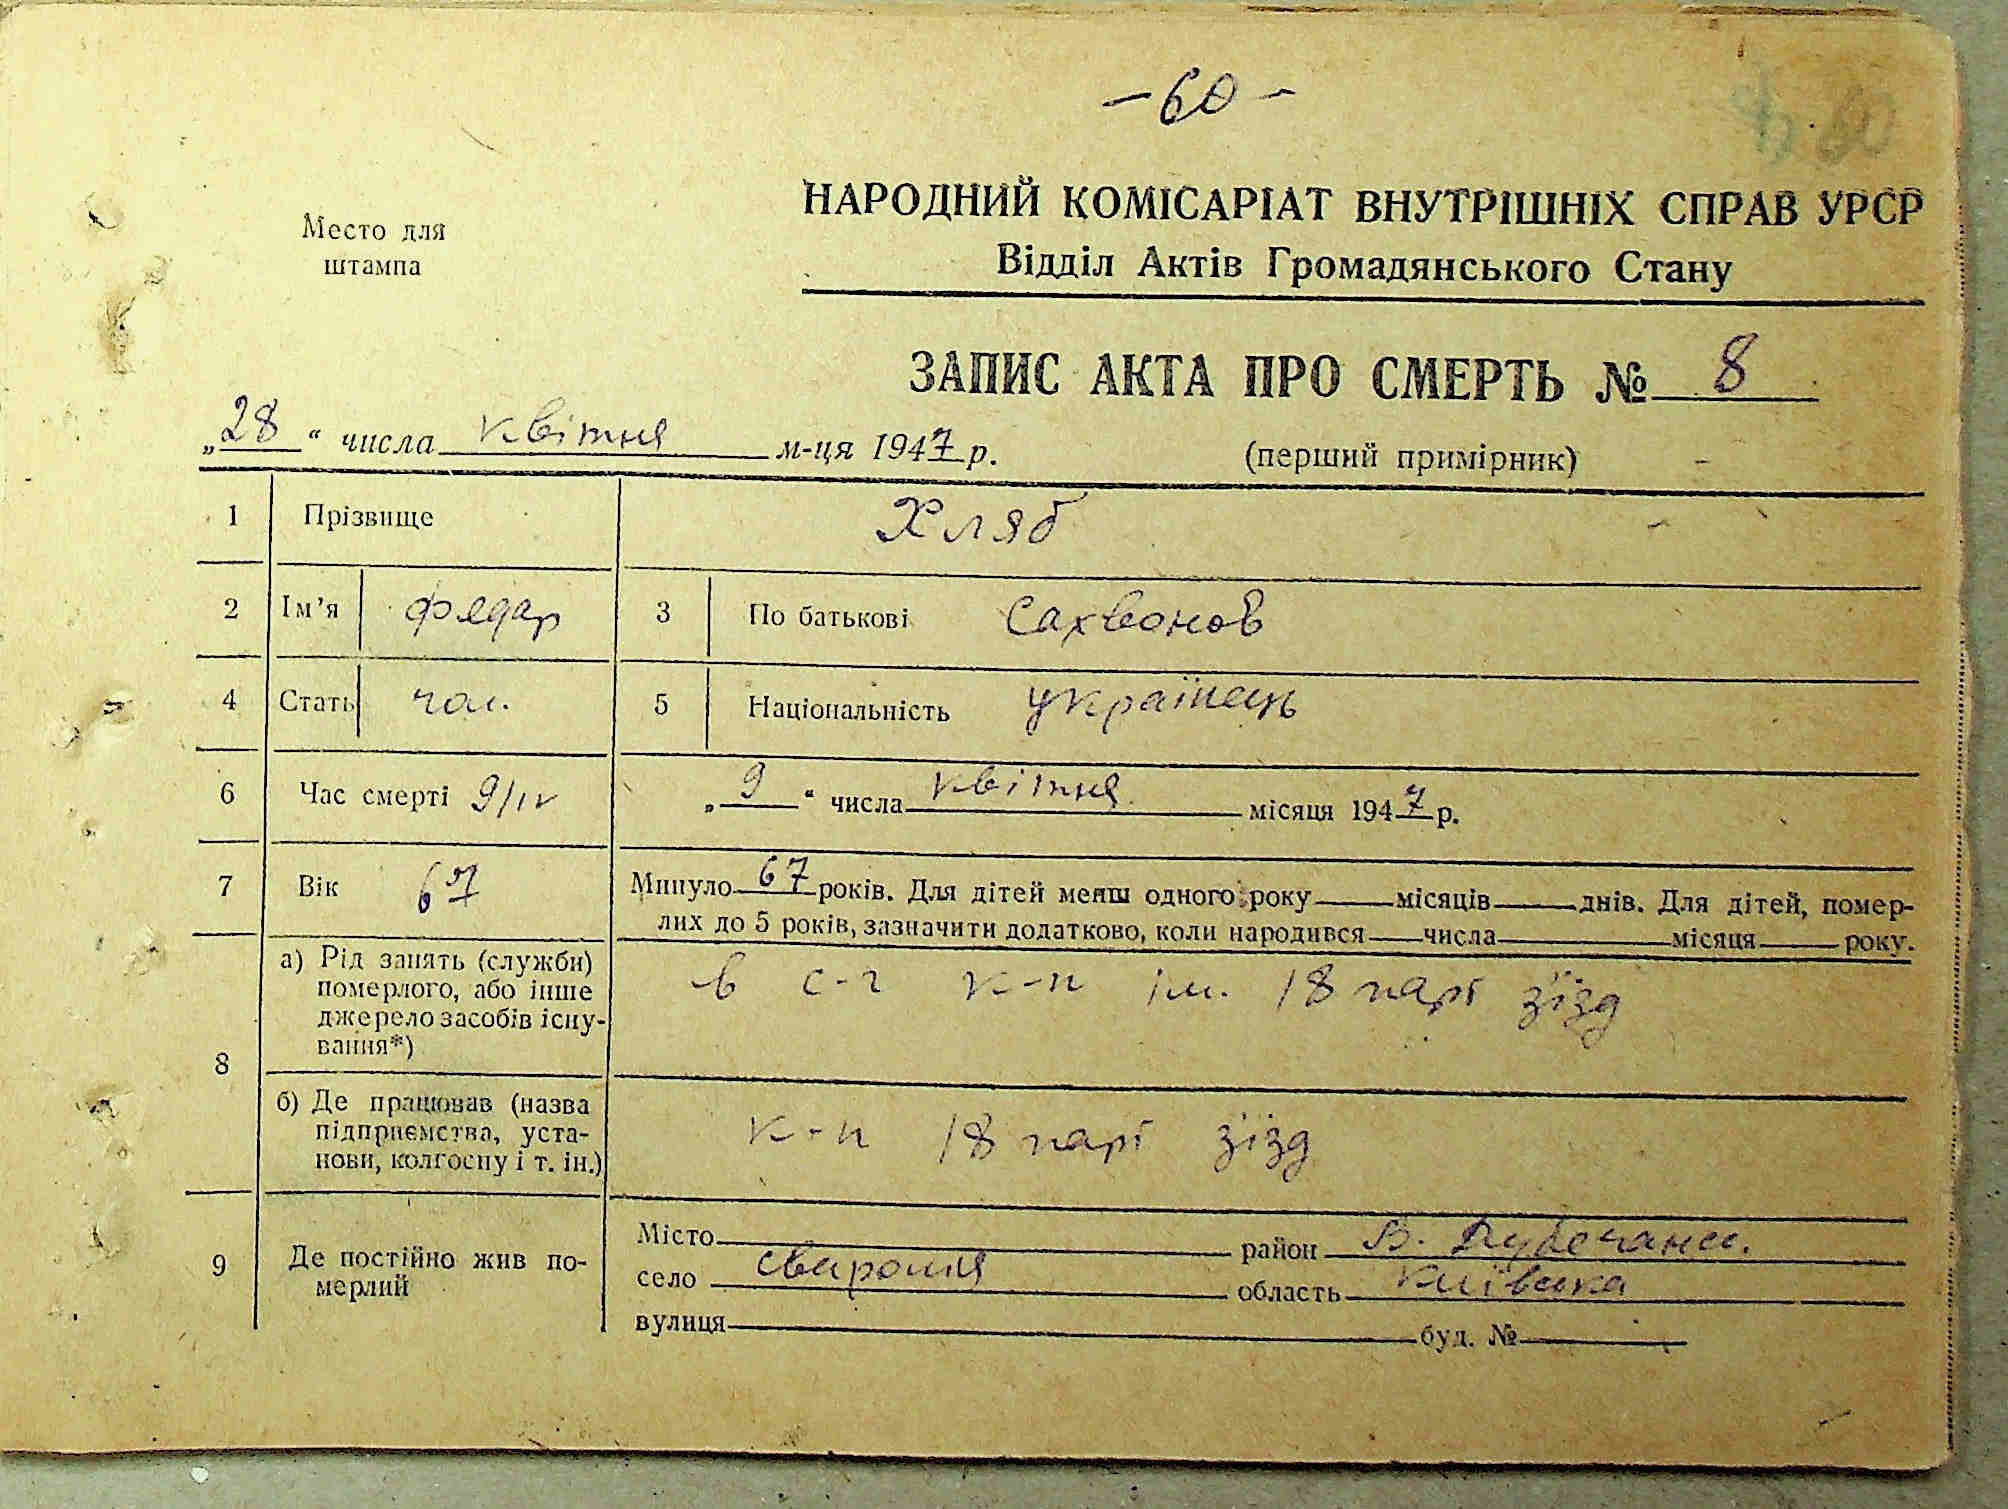 –60–
60
НАРОДНИЙ КОМІСАРІАТ ВНУТРІШНІХ СПРАВ УРСР
Место для штампа
Відділ Актів Громадянського Стану
ЗАПИС АКТА ПРО СМЕРТЬ № 8
„28“ числа квітня м-ця 1947 р. (перший примірник)
1 Прізвище Хляб
2 Ім’я Федар 3 По батькові Сахвонов
4 Стать чол. 5 Національність українець
6 Час смерті 9/IV „9“ числа квітня місяця 1947 р.
7 Вік 67 Минуло 67 років. Для дітей менш одного року місяців днів. Для дітей, помер-
лих до 5 років, зазначити додатково, коли народився числа місяця року.
8 а) Рід занять (служби)
померлого, або інше
джерело засобів існу-
вання*)
в с-г к-п ім. 18 парт зʼїзд
б) Де працював (назва
підприємства, уста-
нови, колгоспу і т. ін.)
к-п 18 парт зʼїзд
9 Де постійно жив по-
мерлий
Місто район В. Дубечанс.
село Свиромля область Київська
вулиця буд. №